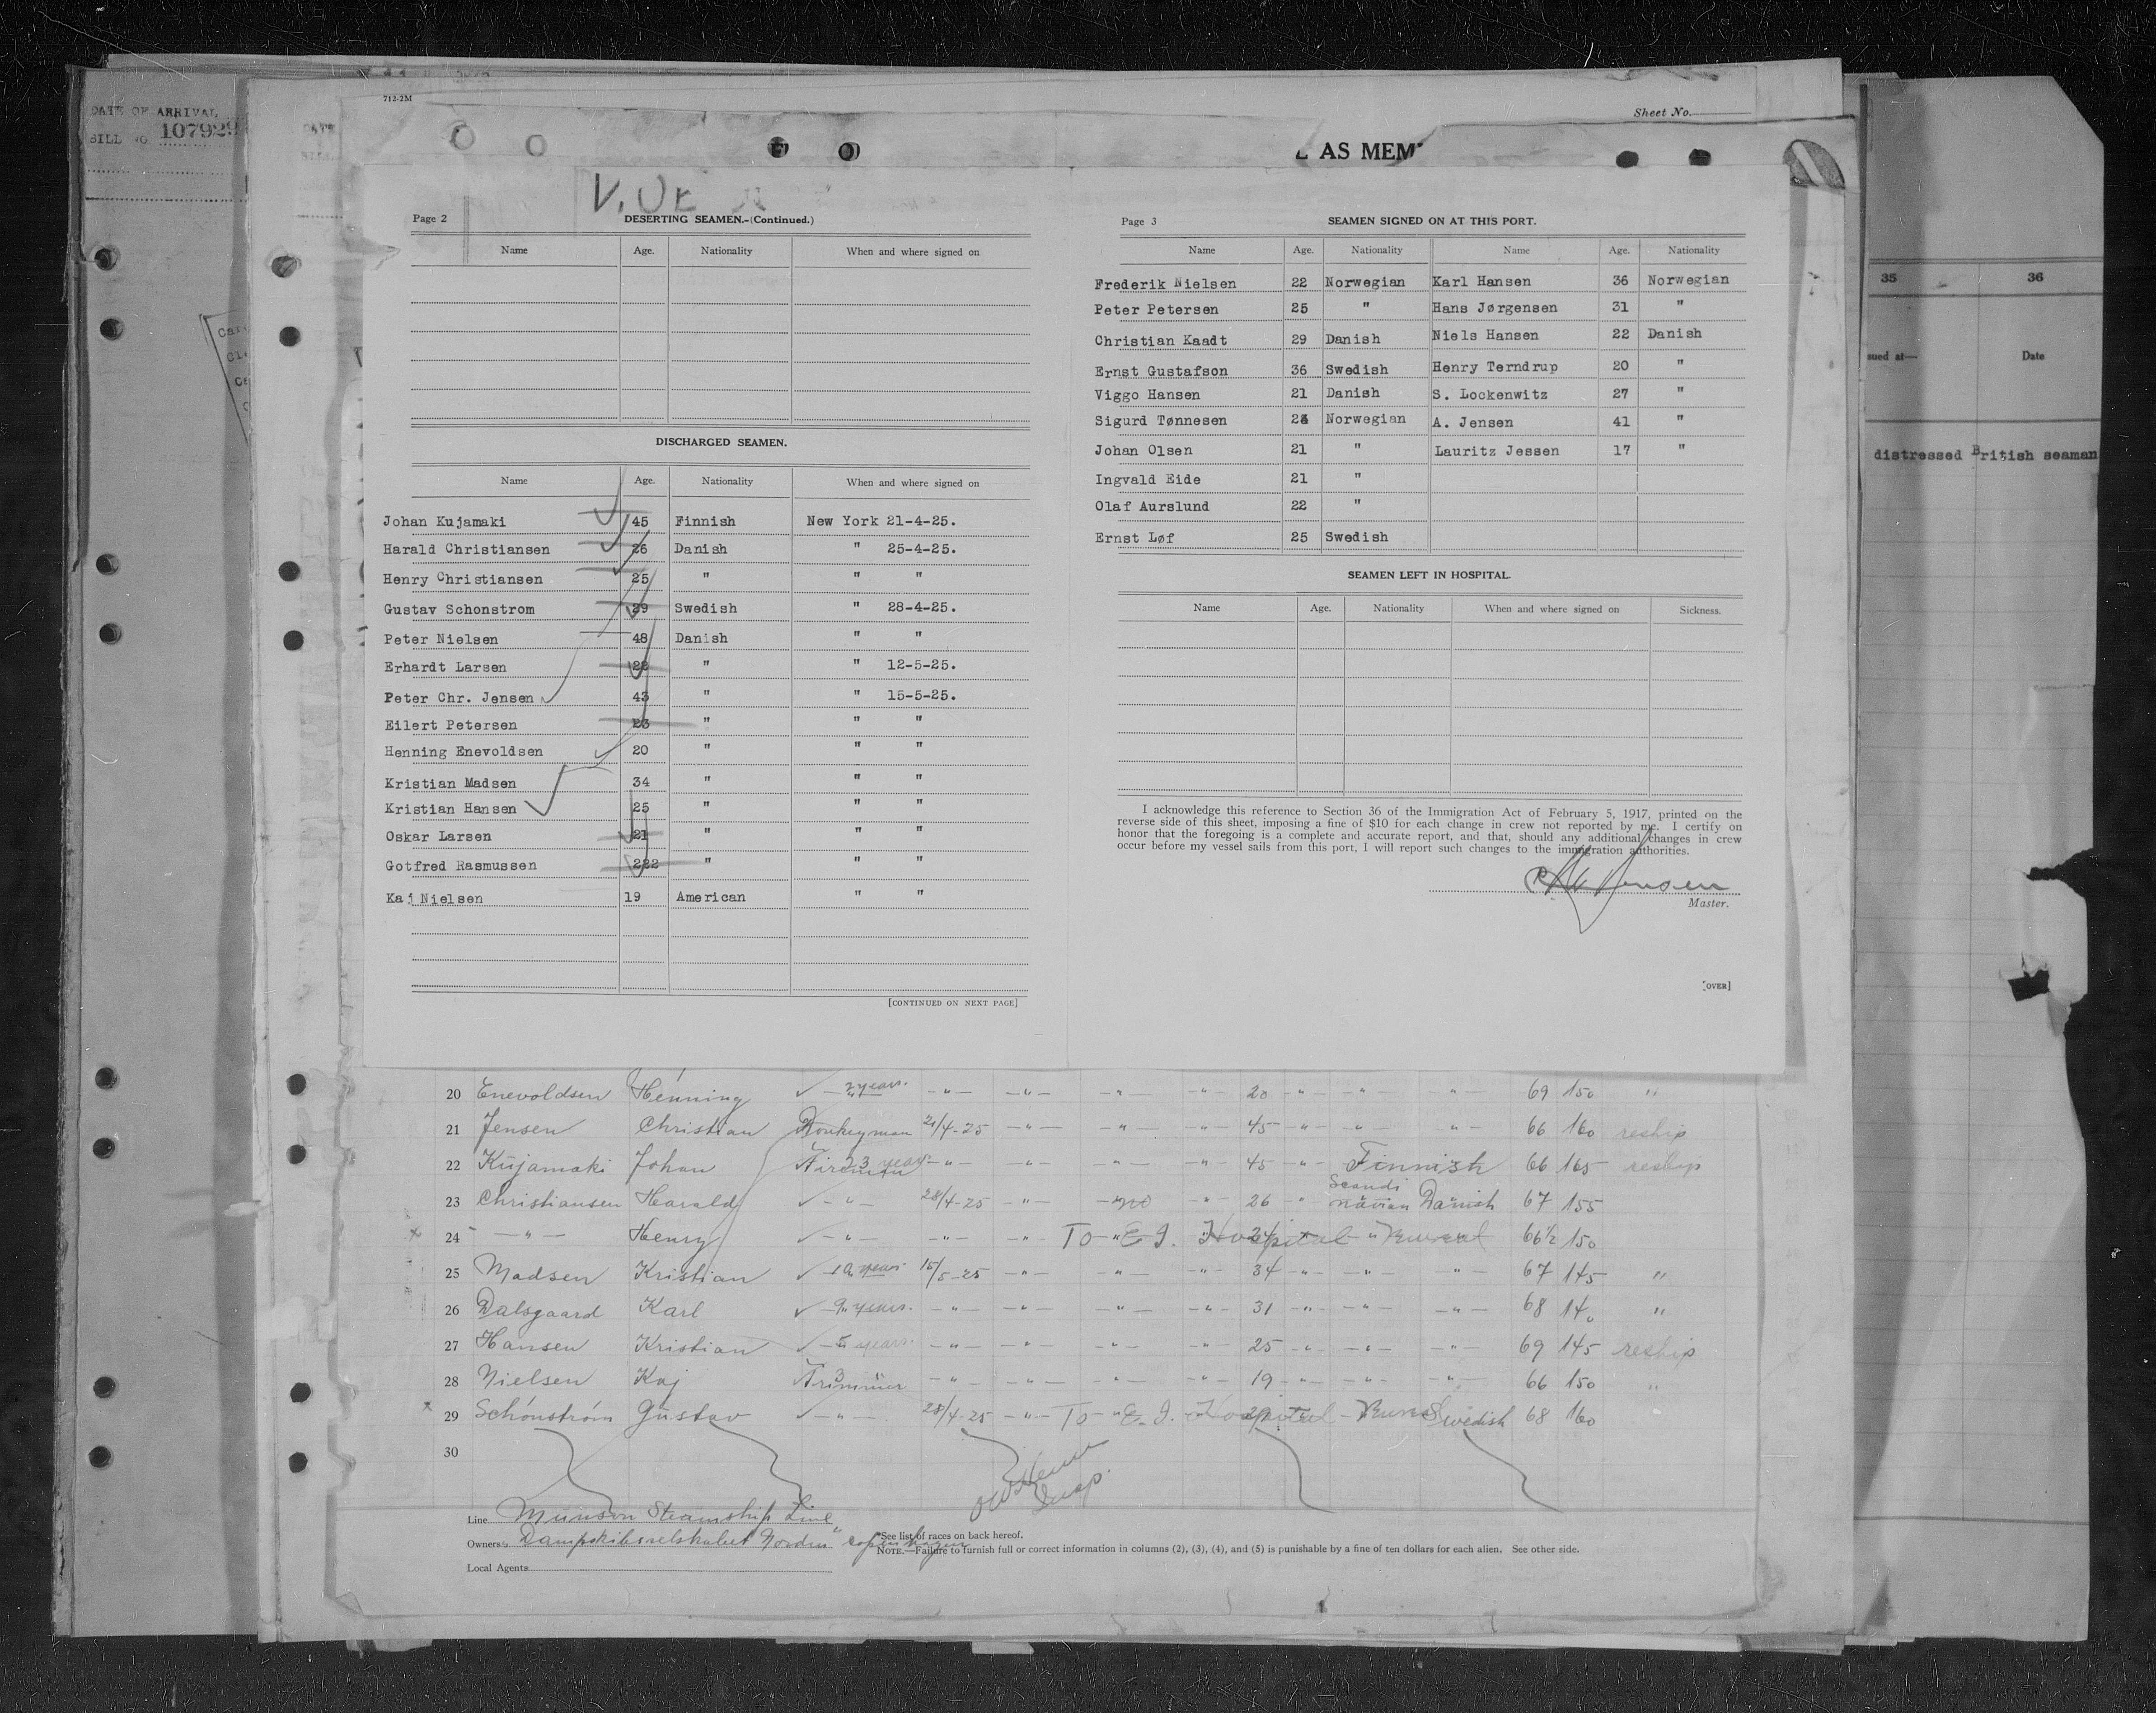 DATE OF ARRIVAL
BILL NO. 107929
712-2M
Sheet No.
AS MEM
Page 2 DESERTING SEAMEN.-(Continued.)
Name Age. Nationality When and where signed on
DISCHARGED SEAMEN.
Name Age. Nationality When and where signed on
Johan Kujamaki 45 Finnish New York 21-4-25.
Harald Christiansen 26 Danish " 25-4-25.
Henry Christiansen 25 " " "
Gustav Schonstrom 29 Swedish " 28-4-25.
Peter Nielsen 48 Danish " "
Erhardt Larsen 22 " " 12-5-25.
Peter Chr. Jensen 43 " " 15-5-25.
Eilert Petersen 23 " " "
Henning Enevoldsen 20 " " "
Kristian Madsen 34 " " "
Kristian Hansen 25 " " "
Oskar Larsen 21 " " "
Gotfred Rasmussen 222 " " "
Kaj Nielsen 19 American " "
[CONTINUED ON NEXT PAGE]
Page 3 SEAMEN SIGNED ON AT THIS PORT.
Name Age. Nationality Name Age. Nationality
Frederik Nielsen 22 Norwegian Karl Hansen 36 Norwegian
Peter Petersen 25 " Hans Jørgensen 31 "
Christian Kaadt 29 Danish Niels Hansen 22 Danish
Ernst Gustafson 36 Swedish Henry Terndrup 20 "
Viggo Hansen 21 Danish S. Lockenwitz 27 "
Sigurd Tønnesen Norwegian A. Jensen 41 "
Johan Olsen 21 " Lauritz Jessen 17 "
Ingvald Eide 21 "
Olaf Aurslund 22 "
Ernst Løf 25 Swedish
SEAMEN LEFT IN HOSPITAL.
Name Age. Nationality When and where signed on Sickness.
I acknowledge this reference to Section 36 of the Immigration Act of February 5, 1917, printed on the
reverse side of this sheet, imposing a fine of $10 for each change in crew not reported by me. I certify on
honor that the foregoing is a complete and accurate report, and that, should any additional changes in crew
occur before my vessel sails from this port, I will report such changes to the immigration authorities.
Master.
[OVER]
35 36
sued at— Date
distressed British seaman
20 Enevoldsen Henning 2 years. -"- -"- -"- -"- 20 -"- " -"- 69 150 "
21 Jensen Christian Donkeyman 21/4-25 -"- -"- -"- 45 -"- " -"- 66 160 reship
22 Kujamaki Johan Fireman 23 years -"- -"- -"- -"- 45 -"- Finnish 66 165 reship
23 Christiansen Harald -"- 28/4-25 -"- no " 26 " Scandinavian Danish 67 155
24 -"- Henry -"- -"- -"- To E.I. Hospital 66½ 150
25 Madsen Kristian 10 years 15/5-25 -"- -"- -"- 34 -"- -"- -"- 67 145 "
26 Dalsgaard Karl 9 years. -"- -"- -"- -"- 31 -"- -"- -"- 68 140 "
27 Hansen Kristian 5 years. -"- -"- -"- -"- 25 -"- -"- -"- 69 145 reship
28 Nielsen Kaj Trimmer -"- -"- -"- -"- 19 -"- -"- -"- 66 150 "
29 Schönström Gustav -"- 28/4-25 -"- To E.I. Hospital Swedish 68 160
30
Line Munson Steamship Line
Owners Dampskibsselskabet Norden Copenhagen
Local Agents
*See list of races on back hereof.
NOTE.—Failure to furnish full or correct information in columns (2), (3), (4), and (5) is punishable by a fine of ten dollars for each alien. See other side.